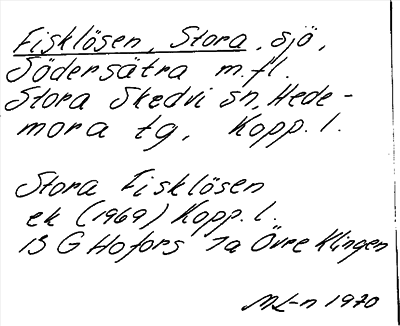 Fisklösen, Stora, sjö,
Södersätra m.fl.
Stora Skedvi sn, Hede-
mora tg, Kopp. l.
Stora Fisklösen
ek (1969) Kopp. l.
13 G Hofors 1a Övre Klingen
ML-n 1970